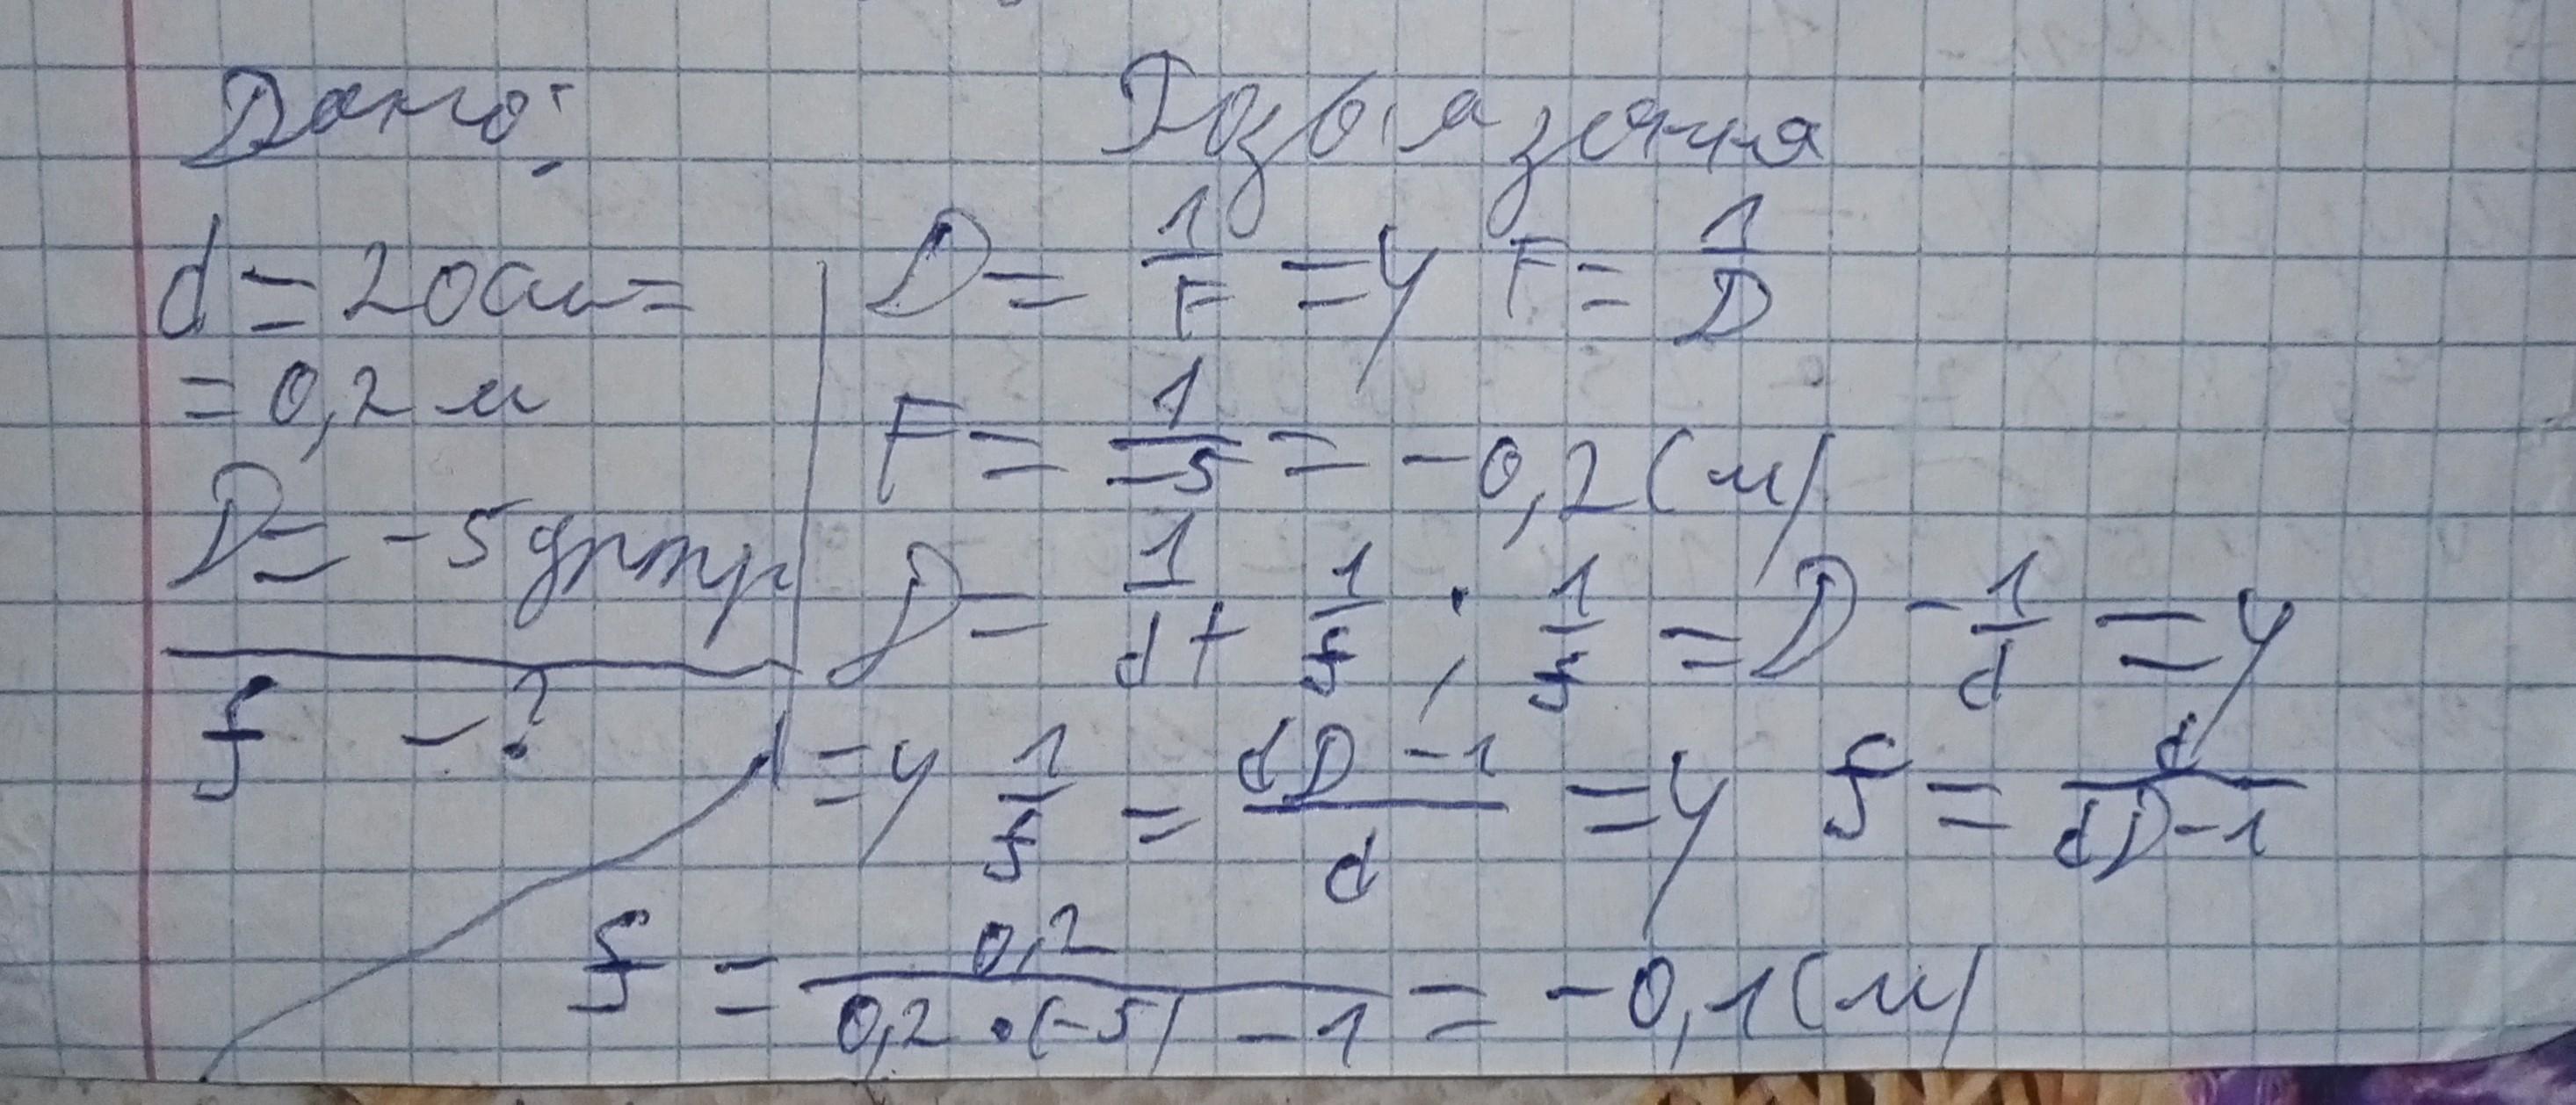 Дано:
d = 20 см =
= 0,2 м
D = -5 дптр
f - ?
Розв'язання
D = 1/F => F = 1/D
F = 1/-5 = -0,2 (м)
D = 1/d + 1/f ; 1/f = D - 1/d =>
=> 1/f = dD - 1/d => f = d/dD - 1
f = 0,2/0,2 • (-5) - 1 = -0,1 (м)